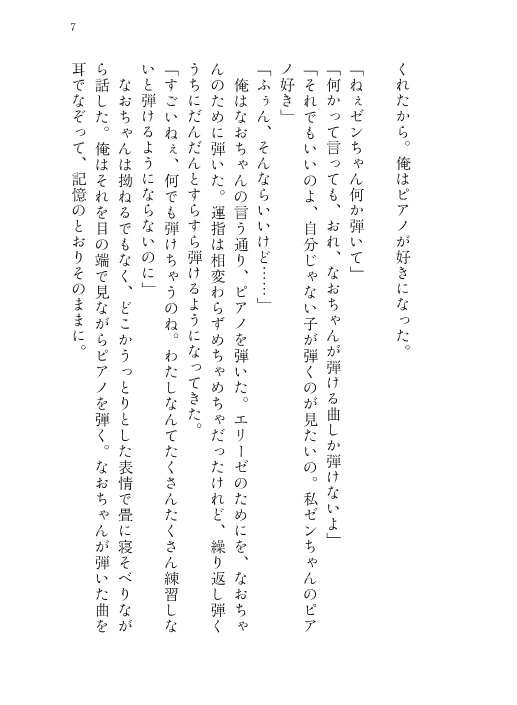 7
くれたから。俺はピアノが好きになった。
「ねぇゼンちゃん何か弾いて」
「何かって言っても、おれ、なおちゃんが弾ける曲しか弾けないよ」
「それでもいいのよ、自分じゃない子が弾くのが見たいの。私ゼンちゃんのピア
ノ好き」
「ふぅん、そんならいいけど……」
　俺はなおちゃんの言う通り、ピアノを弾いた。エリーゼのためにを、なおちゃ
んのために弾いた。運指は相変わらずめちゃめちゃだったけれど、繰り返し弾く
うちにだんだんとすらすら弾けるようになってきた。
「すごいねぇ、何でも弾けちゃうのね。わたしなんてたくさんたくさん練習しな
いと弾けるようにならないのに」
　なおちゃんは拗ねるでもなく、どこかうっとりとした表情で畳に寝そべりなが
ら話した。俺はそれを目の端で見ながらピアノを弾く。なおちゃんが弾いた曲を
耳でなぞって、記憶のとおりそのままに。